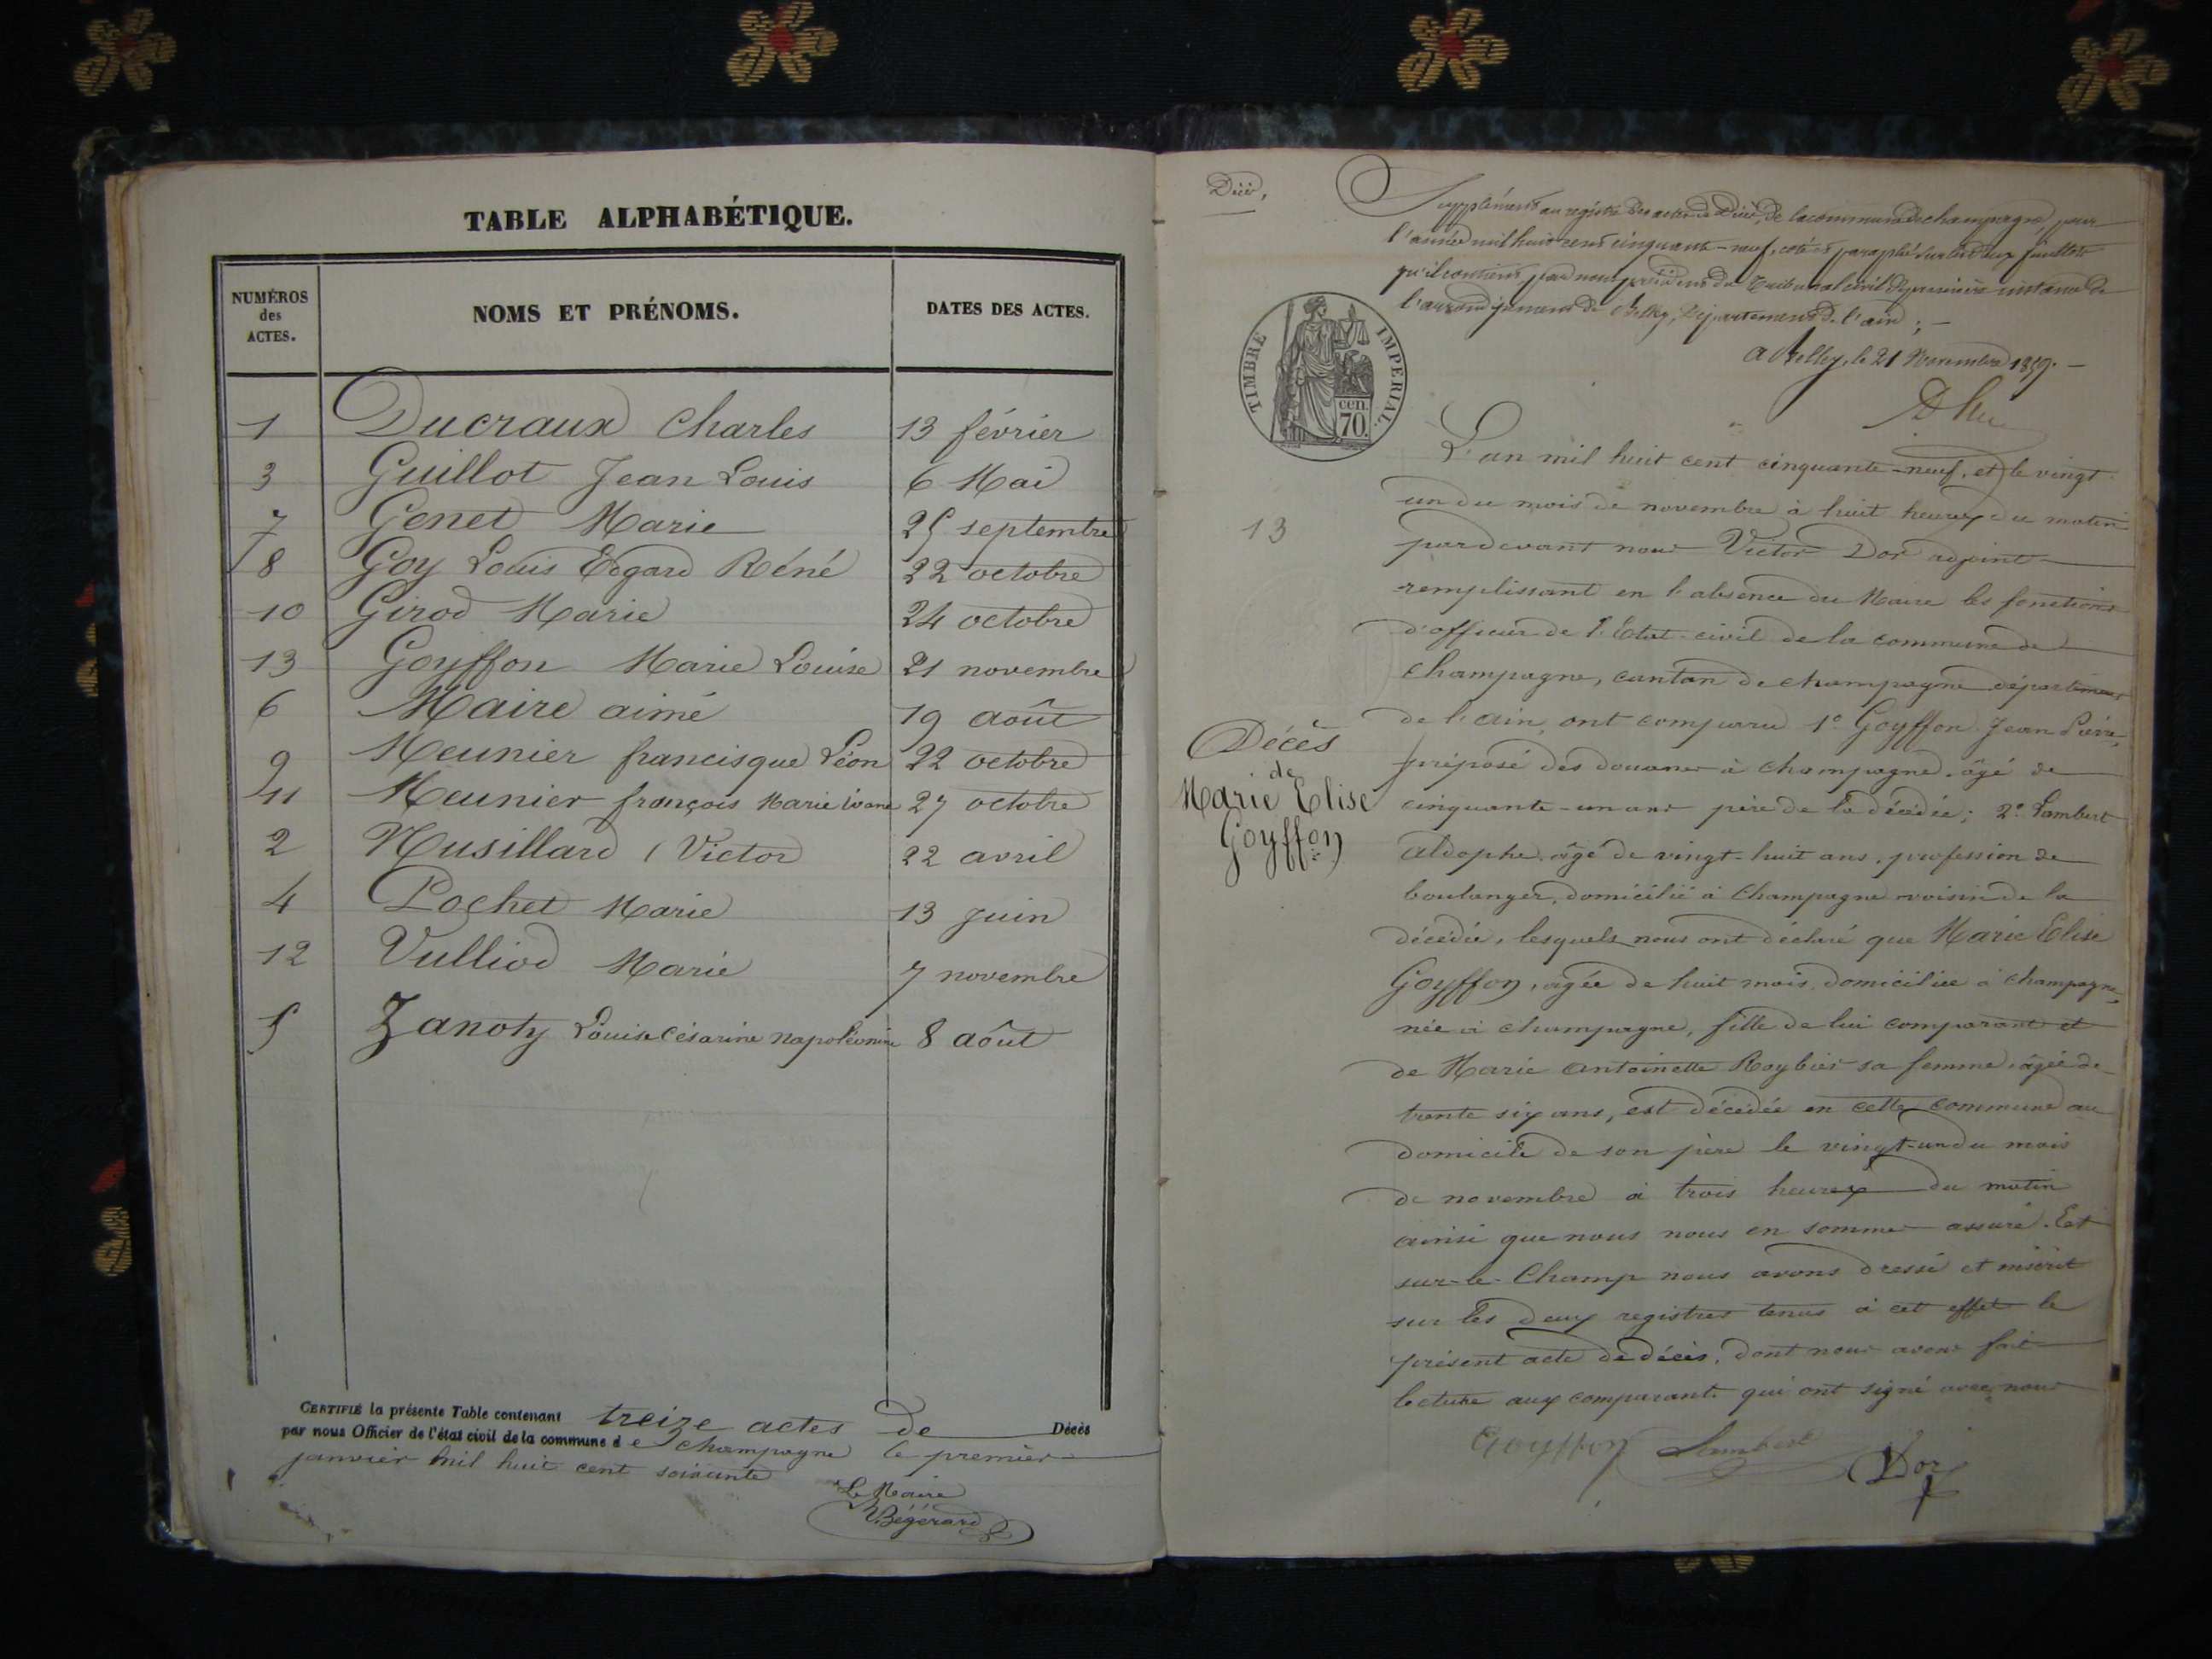 TABLE ALPHABÉTIQUE.
NUMÉROS des ACTES. NOMS ET PRÉNOMS. DATES DES ACTES.
1 Ducraux Charles 13 février
3 Guillot Jean Louis 6 Mai
7 Genet Marie 25 septembre
8 Goy Louis Edgard Réné 22 octobre
10 Girod Marie 24 octobre
13 Goyffon Marie Louise 21 novembre
6 Maire aimé 19 août
9 Meunier francisque Léon 22 octobre
11 Meunier françois Marie 27 octobre
2 Musillard Victor 22 avril
4 Pochet Marie 13 juin
12 Vulliod Marie 7 novembre
5 Zanoty Louise Césarine 8 août
CERTIFIÉ la présente Table contenant treize actes de Décès
par nous Officier de l'état civil de la commune de Champagne le premier
janvier mil huit cent soixante
Le Maire
Bégérard
Décès,
Supplément au registre des actes de Décès, de la commune de champagne, pour
l'année mil huit cent cinquante-neuf, coté et paraphé sur les deux feuillets
qu'il contient, par nous président du Tribunal Civil de première instance de
l'arrondissement de Belley, Département de l'ain ; —
a Belley, le 21 Novembre 1859. —
TIMBRE IMPERIAL.
cen.
70.
L'an mil huit cent cinquante-neuf, et le vingt
un du mois de novembre à huit heures du matin
13
pardevant nous Victor Dor adjoint
remplissant en l'absence du Maire les fonctions
d'officier de l'Etat-civil de la commune de
Champagne, canton de champagne département
de l'ain, ont comparu 1° Goyffon Jean Pierre,
Décès
de
Marie Elise
Goyffon
préposé des douanes à Champagne, âgé de
cinquante-un ans père de la décédée ; 2° Lambert
Aldophe, âgé de vingt-huit ans, profession de
boulanger, domicilié à Champagne voisin de la
décédée, lesquels nous ont déclaré que Marie Elise
Goyffon, agée de huit mois, domiciliée à champagne,
née à champagne, fille de lui comparant et
de Marie Antoinette sa femme, âgée de
trente six ans, est décédée en cette commune au
domicile de son père le vingt-un du mois
de novembre à trois heures du matin
ainsi que nous nous en somme assuré. Et
sur-le-Champ nous avons dressé et inscrit
sur les deux registres tenus à cet effet le
présent acte de décès, dont nous avons fait
lecture aux comparants qui ont signé avec nous
Goyffon Lambert Dor